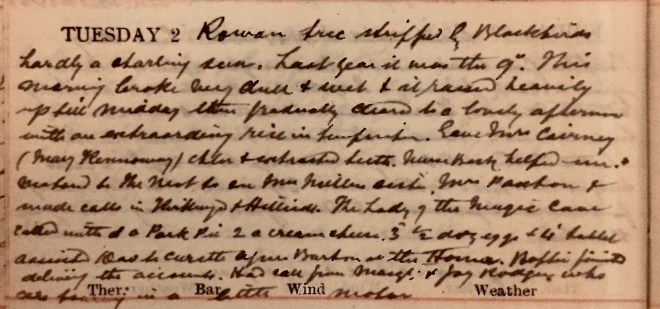 TUESDAY 2 Rowan tree stripped by Blackbirds
hardly a starling seen. Last year it was the 9th. This
morning broke very dull & wet & it rained heavily
up till midday then gradually cleared to a lovely afternoon
with an extraordinary rise in temperature. Gave Mrs Cairney
(Mary Kennoway) chlor & extracted teeth. Nurse Beck helped me.
Motored to the Nest to see Mrs Millers, Mrs Paxton &
made calls in & Hillside. The Lady of the Magic Cave
called with a Pork Pie 2 a cream cheese. 3 1/2 doz eggs &
assisted to curette Agnes Barton at the Home. joined
delivering the accounts. Had call from & Jay Rodger who
are touring in a little motor
Ther. Bar. Wind Weather